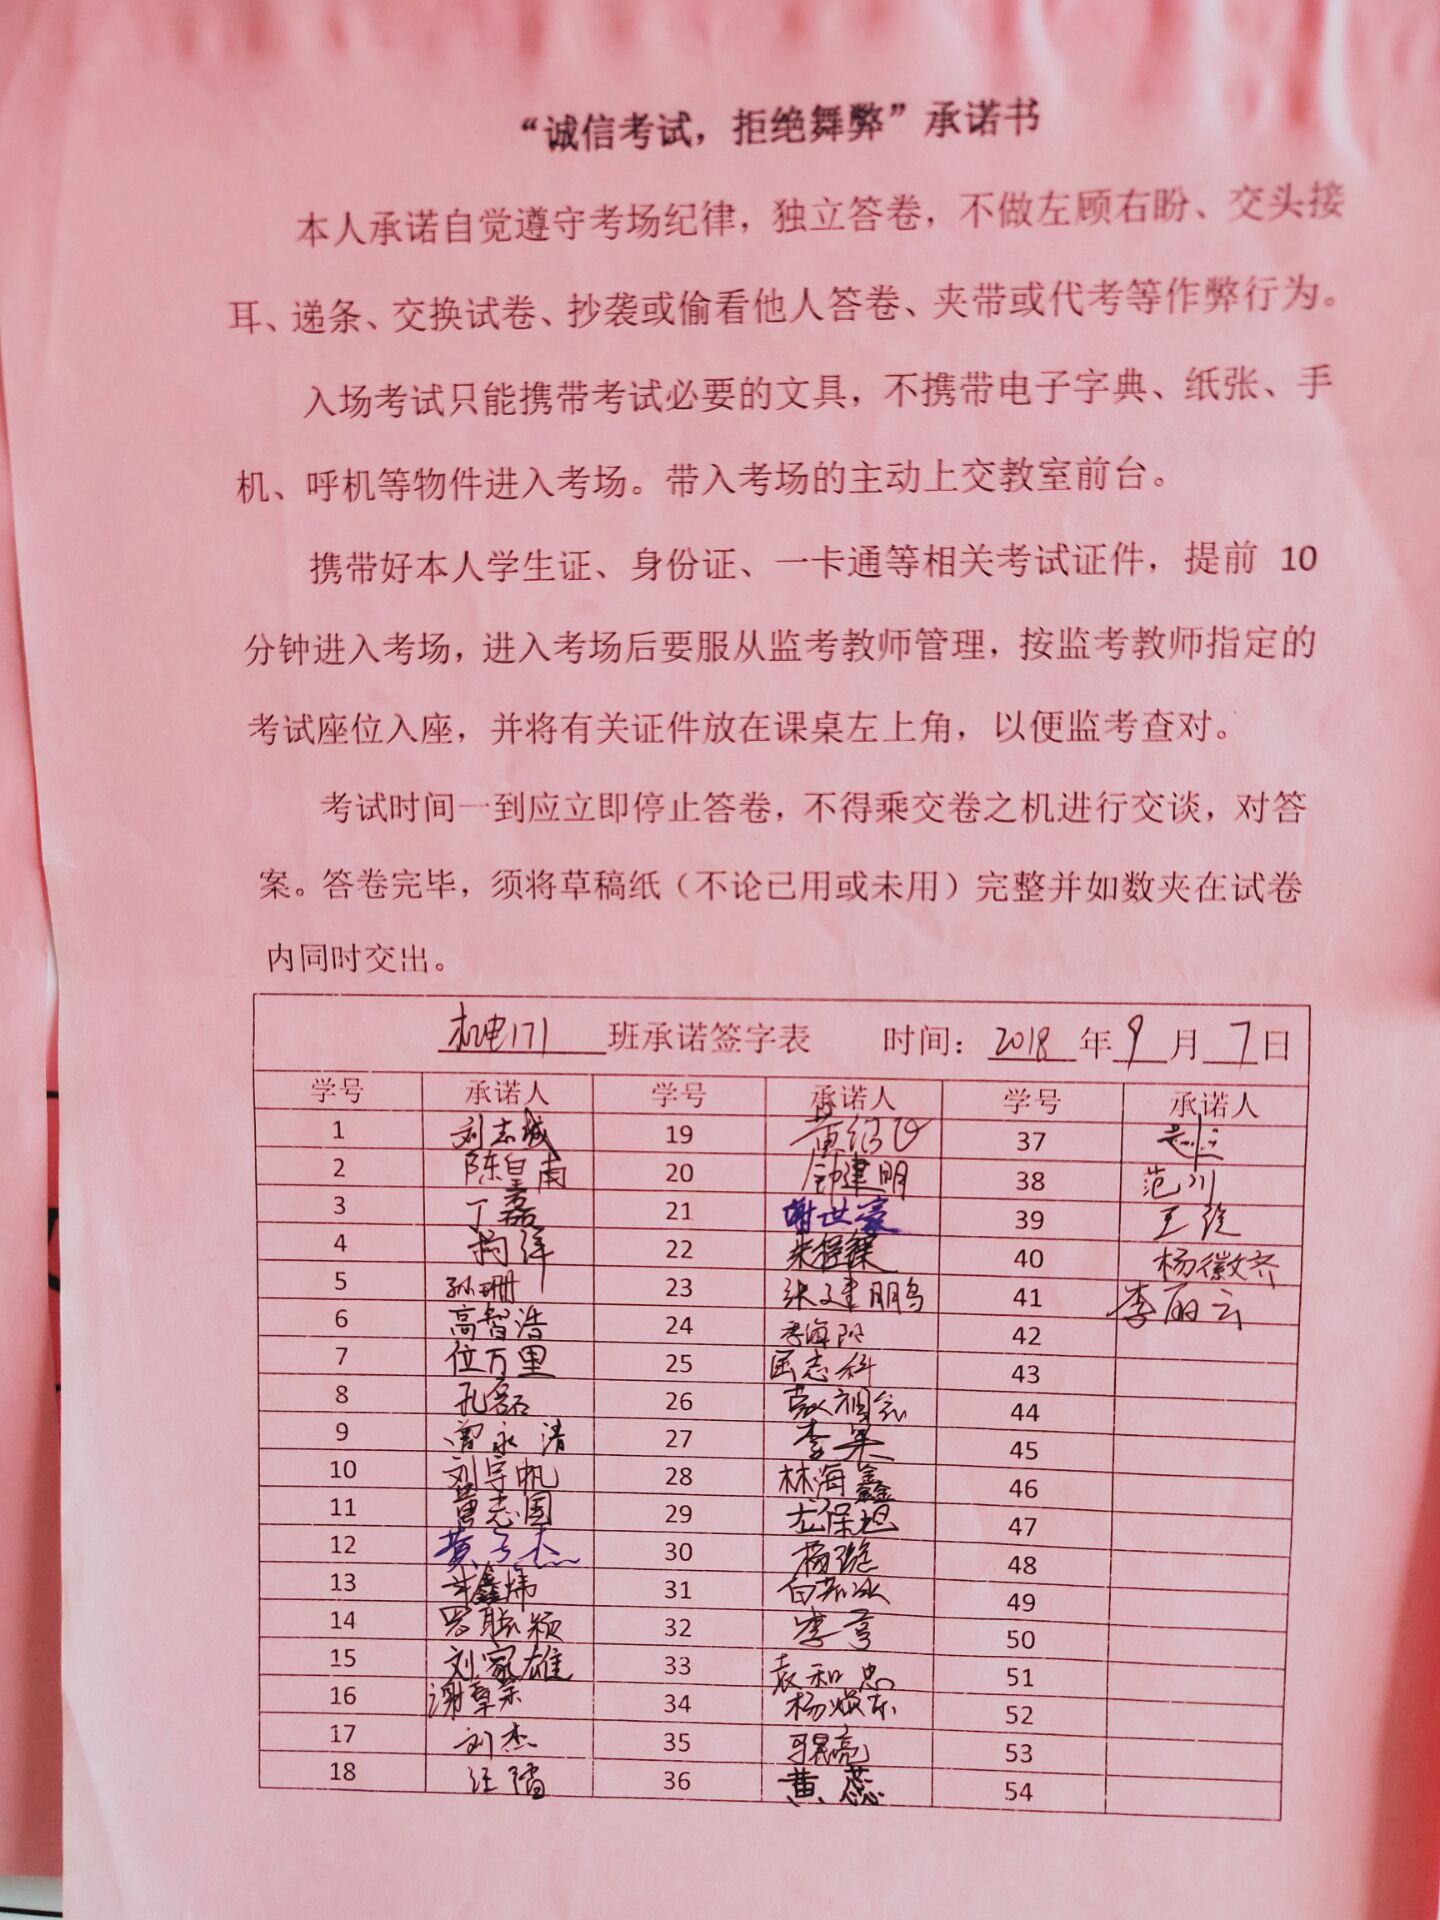 “诚信考试，拒绝舞弊”承诺书
本人承诺自觉遵守考场纪律，独立答卷，不做左顾右盼、交头接
耳、递条、交换试卷、抄袭或偷看他人答卷、夹带或代考等作弊行为。
入场考试只能携带考试必要的文具，不携带电子字典、纸张、手
机、呼机等物件进入考场。带入考场的主动上交教室前台。
携带好本人学生证、身份证、一卡通等相关考试证件，提前 10
分钟进入考场，进入考场后要服从监考教师管理，按监考教师指定的
考试座位入座，并将有关证件放在课桌左上角，以便监考查对。
考试时间一到应立即停止答卷，不得乘交卷之机进行交谈，对答
案。答卷完毕，须将草稿纸（不论已用或未用）完整并如数夹在试卷
内同时交出。
机电171 班承诺签字表 时间：2018 年 9 月 7 日
学号 承诺人 学号 承诺人 学号 承诺人
1 刘志城 19 黄绍飞 37
2 陈皇南 20 钟建明 38 范川
3 丁磊 21 谢世豪 39
4 22 40 杨徽齐
5 孙珊 23 41 李丽云
6 高智浩 24 李海阳 42
7 位万里 25 匡志科 43
8 孔磊 26 44
9 曾永清 27 李果 45
10 刘宇帆 28 林海鑫 46
11 曾志国 29 左保旭 47
12 30 48
13 朱鑫炜 31 49
14 32 李亨 50
15 刘家雄 33 袁和忠 51
16 34 52
17 刘杰 35 53
18 36 黄蕊 54